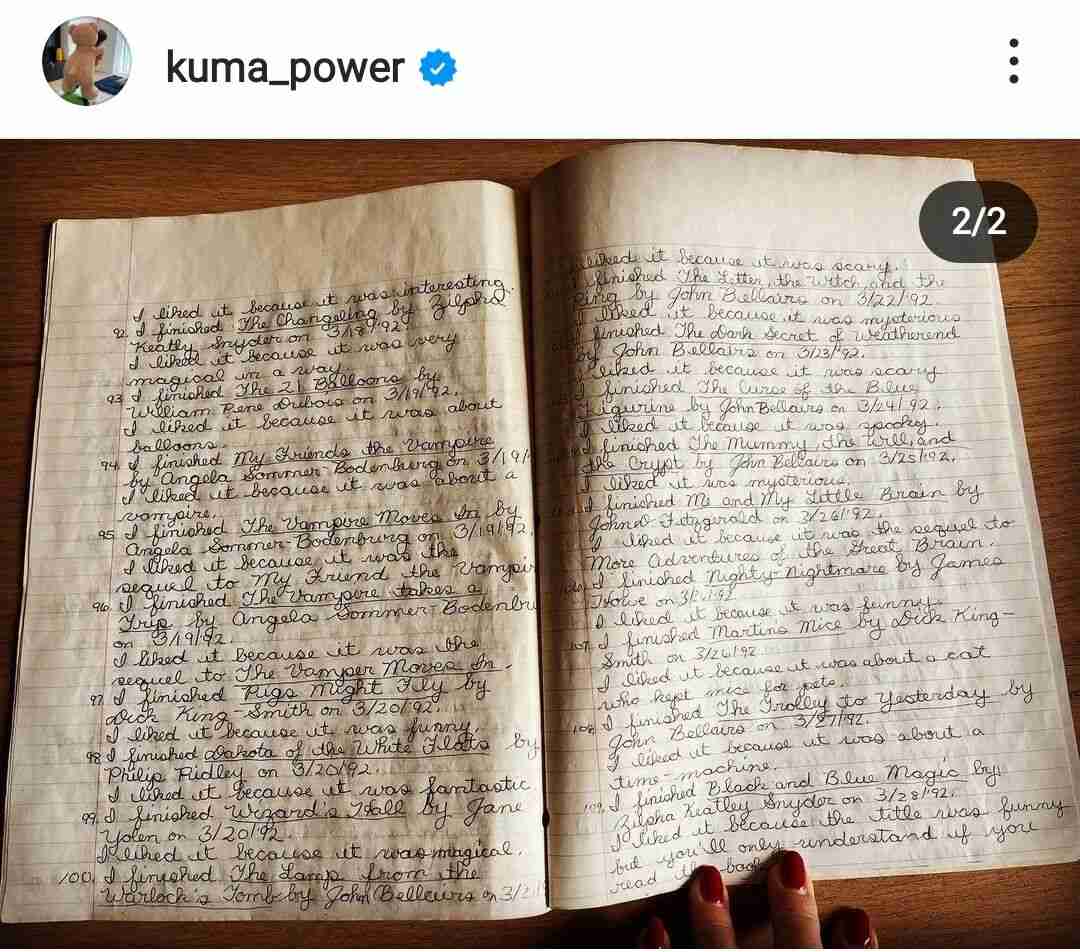 kuma_power
2/2
I liked it because it was interesting.
92. I finished The Changeling by Zilpha
Keatly Snyder on 3/18/92.
I liked it because it was very
magical in a way.
93 I finished The 21 Balloons by
William Rene Dubois on 3/19/92.
I liked it because it was about
balloons.
94. I finished My Friends the Vampire
by Angela Sommer-Bodenburg on 3/19/
I liked it because it was about a
vampire.
95. I finished The Vampire Moves In by
Angela Sommer-Bodenburg on 3/19/92.
I liked it because it was the
sequel to My Friend the Vampir
96. I finished The Vampire takes a
Trip by Angela Sommer-Bodenbu
on 3/19/92.
I liked it because it was the
sequel to The Vamper Moves In.
97. I finished Pigs Might Fly by
Dick King-Smith on 3/20/92.
I liked it because it was funny.
98 I finished Dakota of the White Flats by
Philip Ridley on 3/20/92.
I liked it because it was fantastic
99. I finished Wizard's Hall by Jane
Yolen on 3/20/92.
I liked it because it was magical.
100. I finished The Lamp from the
Warlock's Tomb by John Belleirs on 3/2
I liked it because it was scary.
I finished The Letter, the Witch, and the
Ring by John Bellairs on 3/22/92.
I liked it because it was mysterious
I finished The Dark Secret of Weatherend
by John Bellairs on 3/23/92.
I liked it because it was scary
I finished The Curse of the Blue
Figurine by John Bellairs on 3/24/92.
I liked it because it was spookey.
I finished The Mummy, the Will, and
the Crypt by John Bellairs on 3/25/92.
I liked it was mysterious.
I finished Me and My Little Brain by
John D Fitzgerald on 3/26/92.
I liked it because it was the sequel to
More Adventures of the Great Brain.
I finished Nighty-Nightmare by James
Howe on
I liked it because it was funny.
107. I finished Martins Mice by Dick King-
Smith on 3/26/92
I liked it because it was about a cat
who kept mice for pets.
108 I finished The Trolley to Yesterday by
John Bellairs on 3/27/92.
I liked it because it was about a
time-machine.
109. I finished Black and Blue Magic by
Zilpha Keatley Snyder on 3/28/92.
I liked it because the title was funny
but you'll only understand if you
read the book